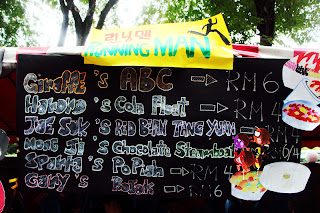 런닝맨
RUNNING MAN
GIRAFFE 's ABC ⇨ RM 6
HARORO 's Cola Float ⇨ RM 4
JAE SUK 's RED BEAN TANG YUAN ⇨ RM 4
MONG JI 's Chocolate Steamboat ⇨ RM 6/4
Sparta 's PoPiah ⇨ RM 4
GARY 's Rojak ⇨ RM 6